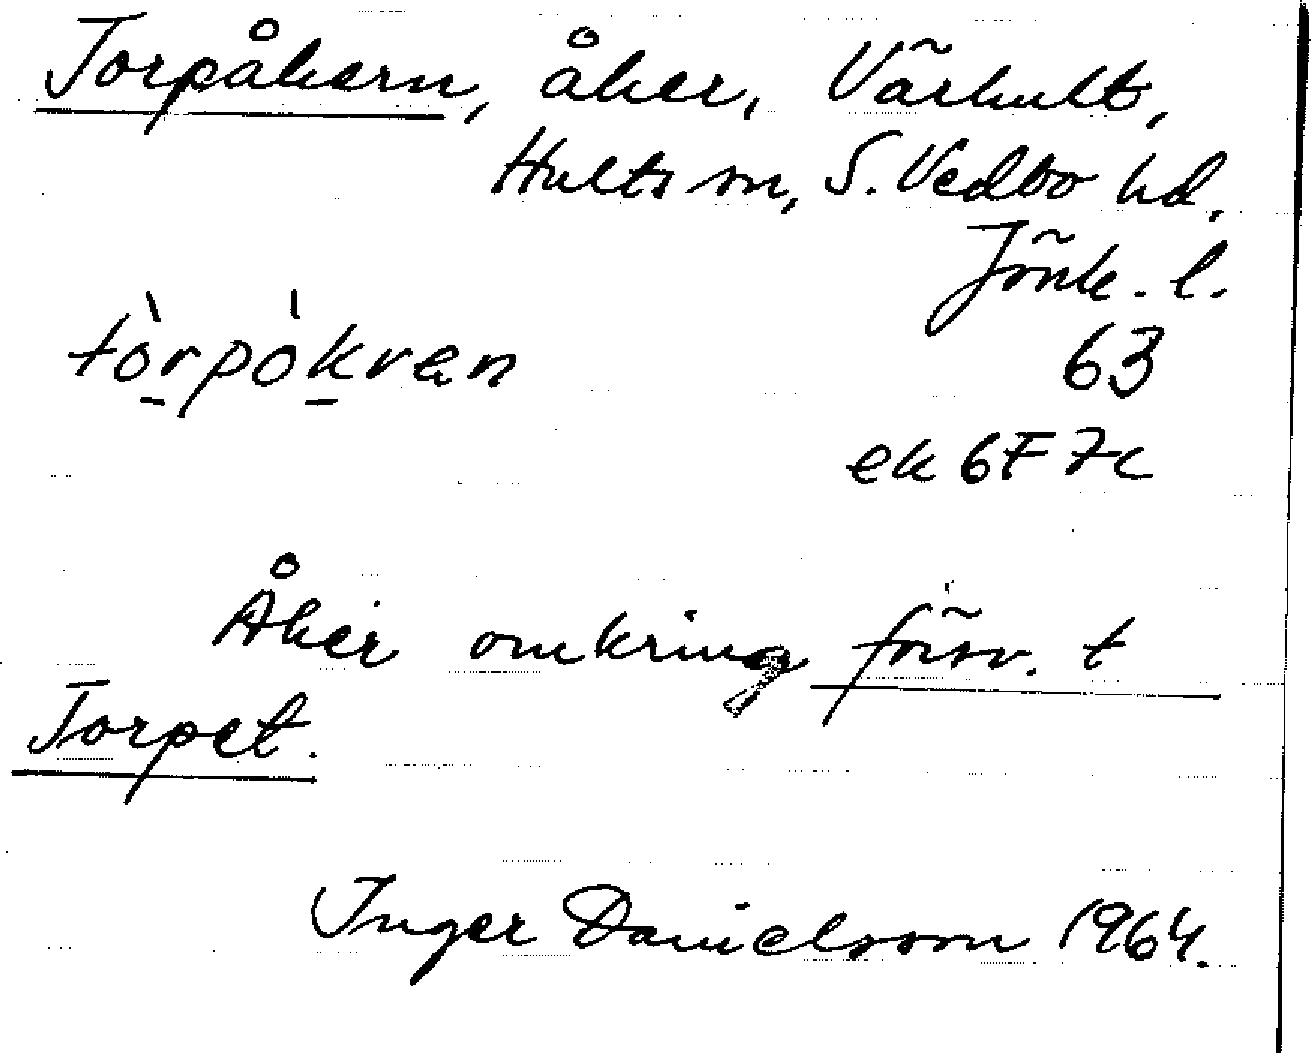 Torpåkern, åker, Värhult,
Hults sn, S. Vedbo hd.
Jönk. l.
tòrpòkran 63
ek 6F 7c
Åker omkring försv. t
Torpet.
Inger Danielsson 1964.